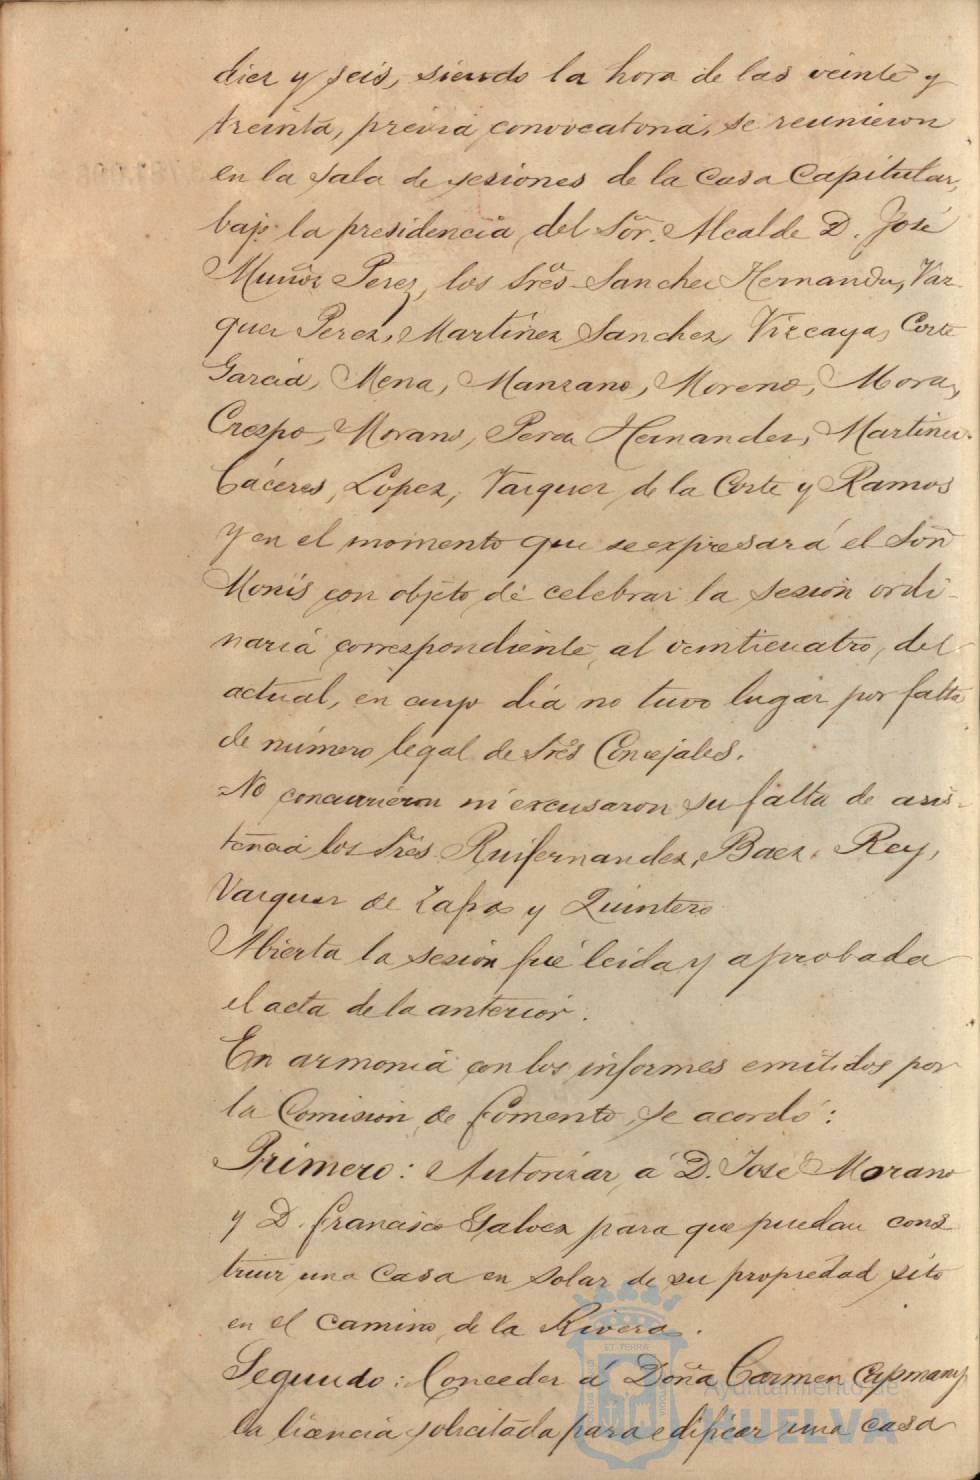 diez y seis, siendo la hora de las veinte y
treinta, previa convocatoria, se reunieron
en la sala de sesiones de la Casa Capitular,
bajo la presidencia del Sor. Alcalde D. José
Muñoz Perez, los Sres Sanchez Hernandez, Vaz-
quez Perez, Martínez Sanchez, Vizcaya, Corte
Garcia, Mena, Manzano, Moreno, Mora,
Crespo, Morano, Perez Hernandez, Martinez
Cáceres, Lopez, Vazquez de la Corte y Ramos
y en el momento que se expresará el Sor
Monís con objeto de celebrar la sesión ordi-
naria correspondiente al veinticuatro, del
actual, en cuyo día no tuvo lugar por falta
de número legal de Sres Concejales.
No concurrieron ni excusaron su falta de asis-
tencia los Sres Ruifernandez, Baez, Rey,
Vazquez de Zafra y Quintero
Abierta la sesión fué leida y aprobada
el acta de la anterior.
En armonía con los informes emitidos por
la Comisión de fomento, se acordó:
Primero: Autorizar á D. José Morano
y D. francisco Galvez para que puedan cons
truir una casa en solar de su propiedad sito
en el camino de la Rivera.
Segundo: Conceder á Doña Carmen Capmany
la licencia solicitada para edificar una casa
ET TERRÆ
Ayuntamiento de
HUELVA